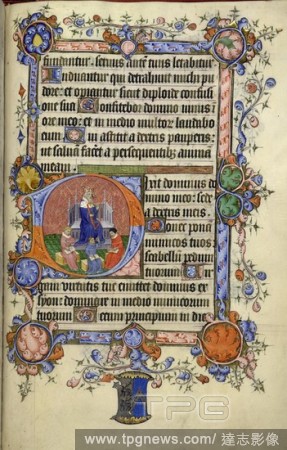 funduntur. Servus autem tuus letabitur
Induantur qui detrahunt michi pu
dore: et operiantur sicut diploide confusi
one sua Confitebor domino nimis
ore meo: et in medio multorum laudabo
eum Qui astitit a dextris pauperis:
ut salvam faceret a persequentibus animam
meam.
Dixit dominus do
mino meo: sede
a dextris meis.
Donec ponam
inimicos tuos:
scabellum pedum
tuorum
Virgam virtutis tue emittet dominus ex
syon: dominare in medio inimicorum
tuorum Tecum principium in die
TPG
www.tpgnews.com/ 達志影像